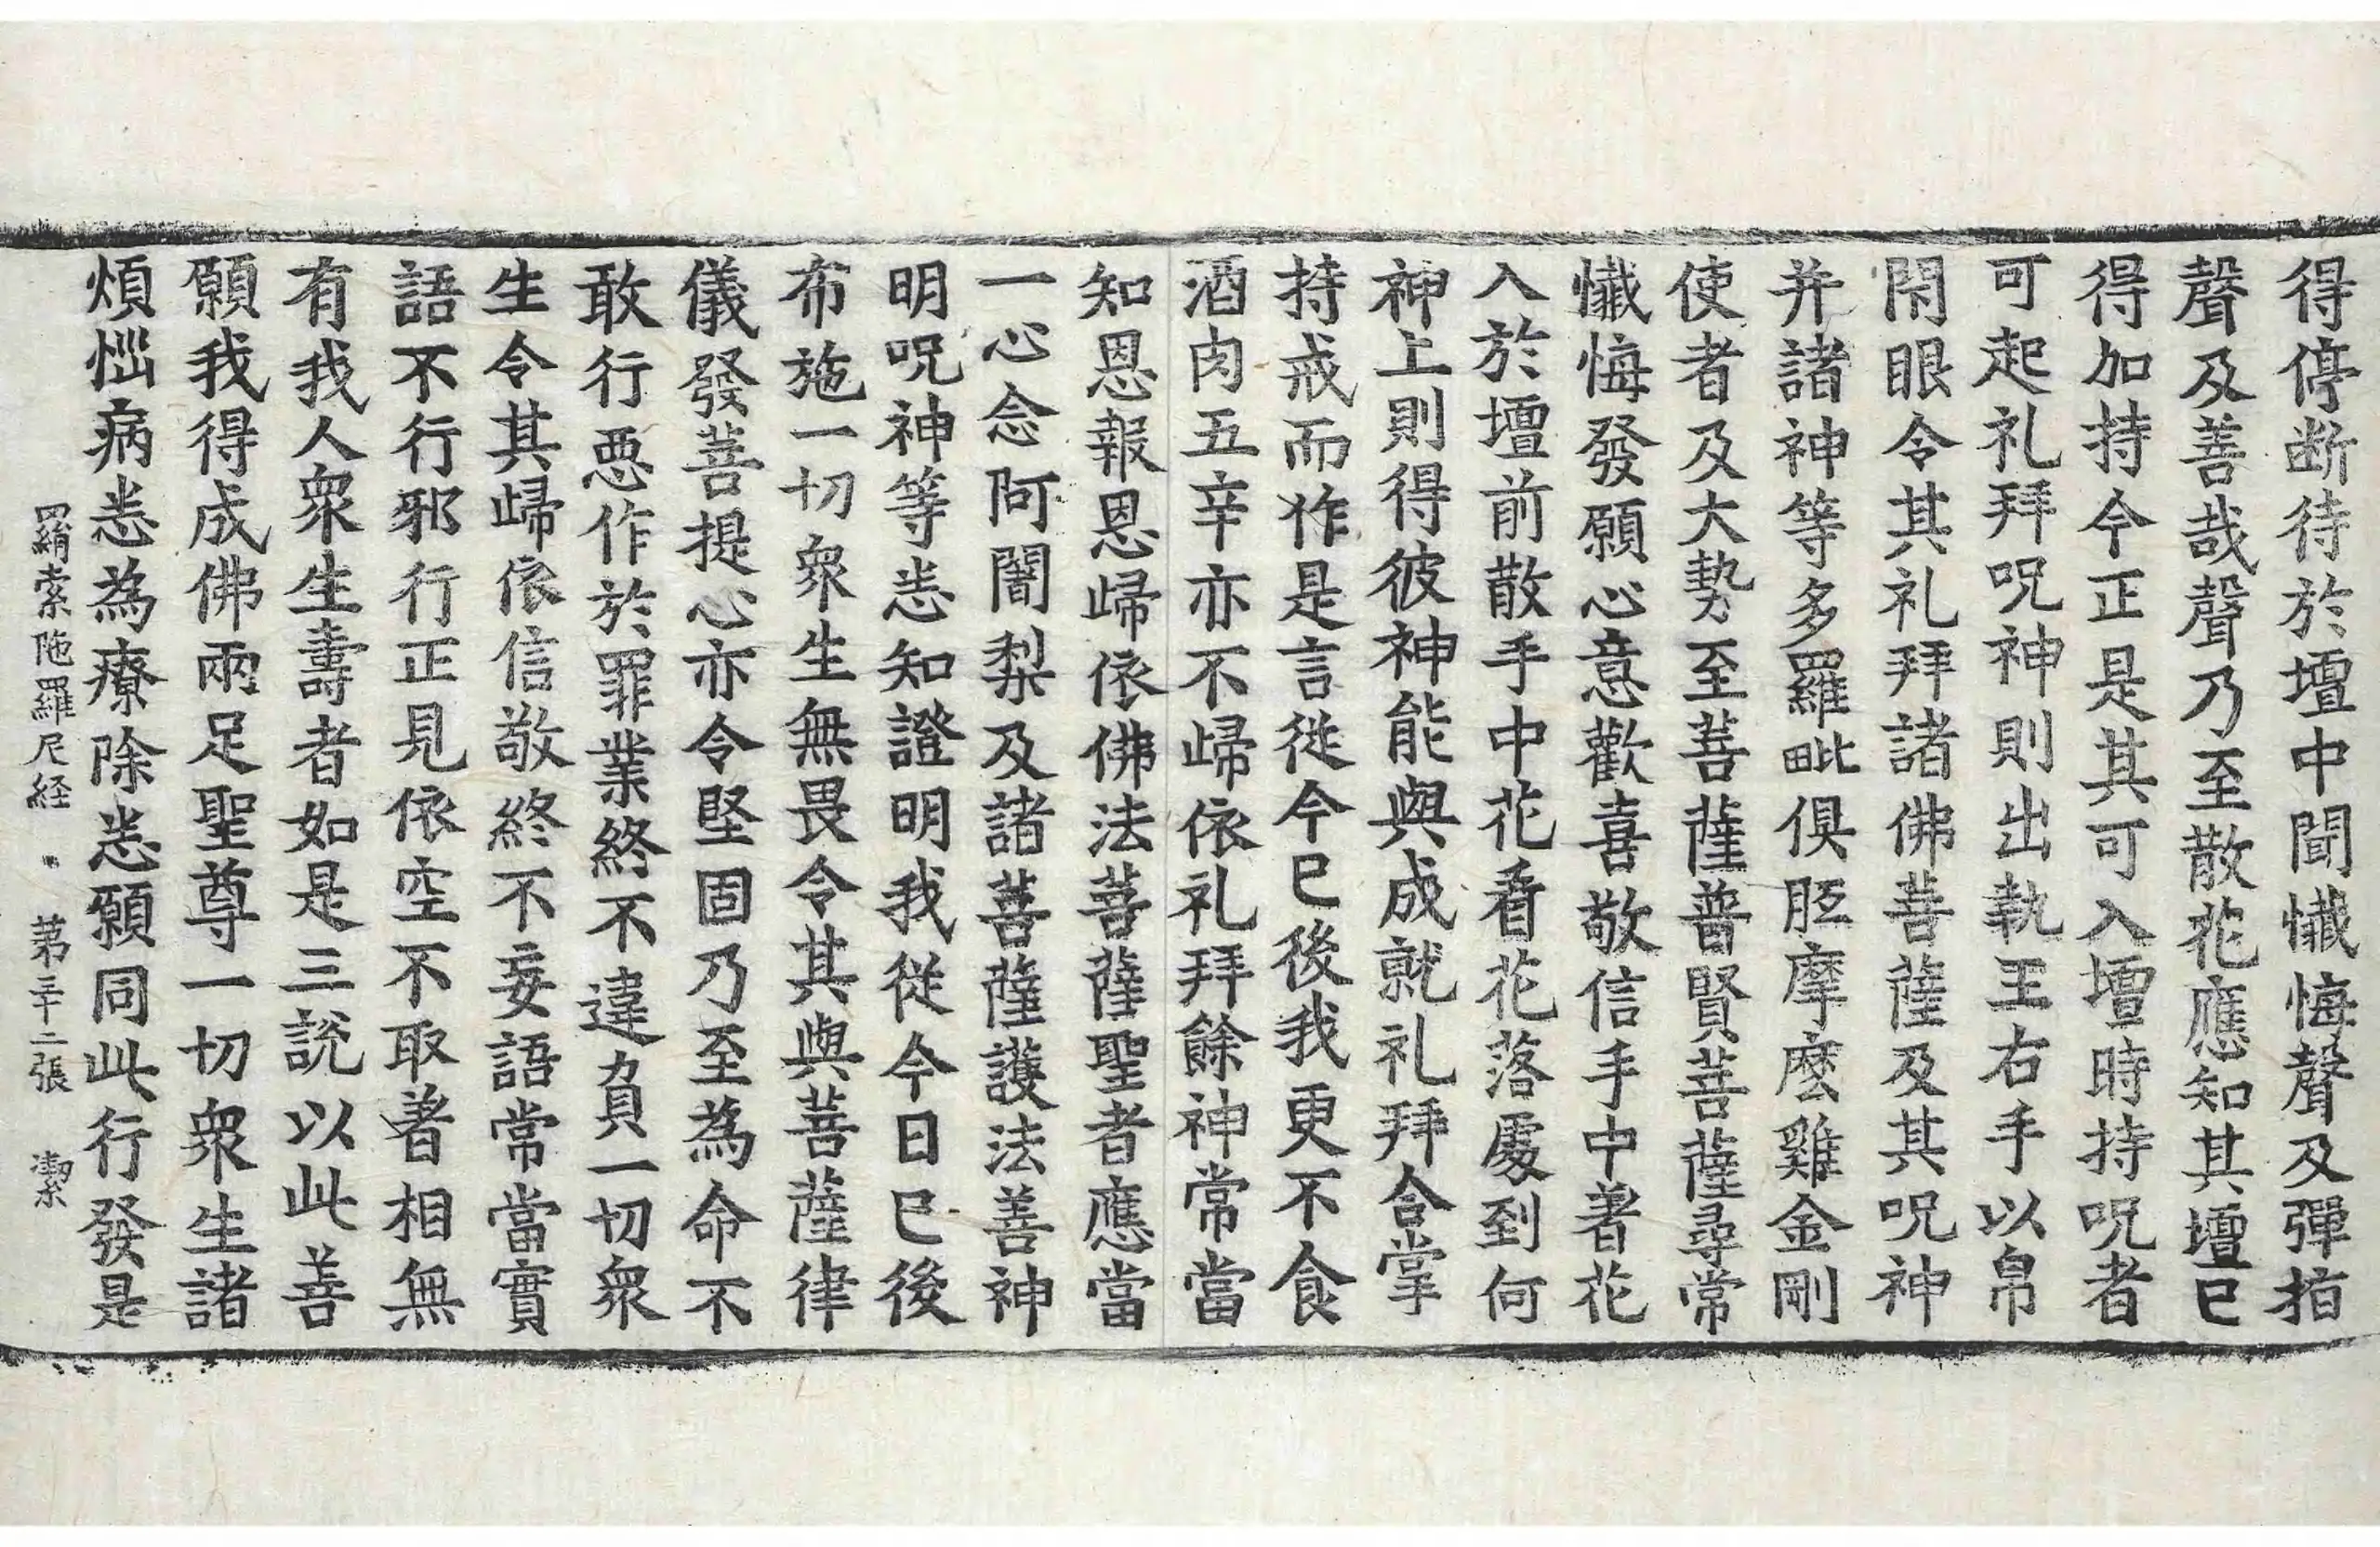 得停断待於壇中聞懺悔聲及彈指
聲及善哉聲乃至散花應知其壇已
得加持今正是其可入壇時持呪者
可起礼拜呪神則出執王右手以帛
閇眼令其礼拜諸佛菩薩及其呪神
并諸神等多羅毗俱胝摩麽雞金剛
使者及大勢至菩薩普賢菩薩尋常
懺悔發願心意歡喜敬信手中著花
入於壇前散手中花看花落處到何
神上則得彼神能與成就礼拜合掌
持戒而作是言從今已後我更不食
酒肉五辛亦不歸依礼拜餘神常當
知恩報恩歸依佛法菩薩聖者應當
一心念阿闍梨及諸菩薩護法善神
明呪神等悉知證明我從今日已後
布施一切衆生無畏令其與菩薩律
儀發菩提心亦令堅固乃至為命不
敢行惡作於罪業終不違負一切衆
生令其歸依信敬終不妄語常當實
語不行邪行正見依空不取著相無
有我人衆生壽者如是三說以此善
願我得成佛兩足聖尊一切衆生諸
煩惱病悉為療除悉願同此行發是
羂索陁羅尼経 第三十二張 潔